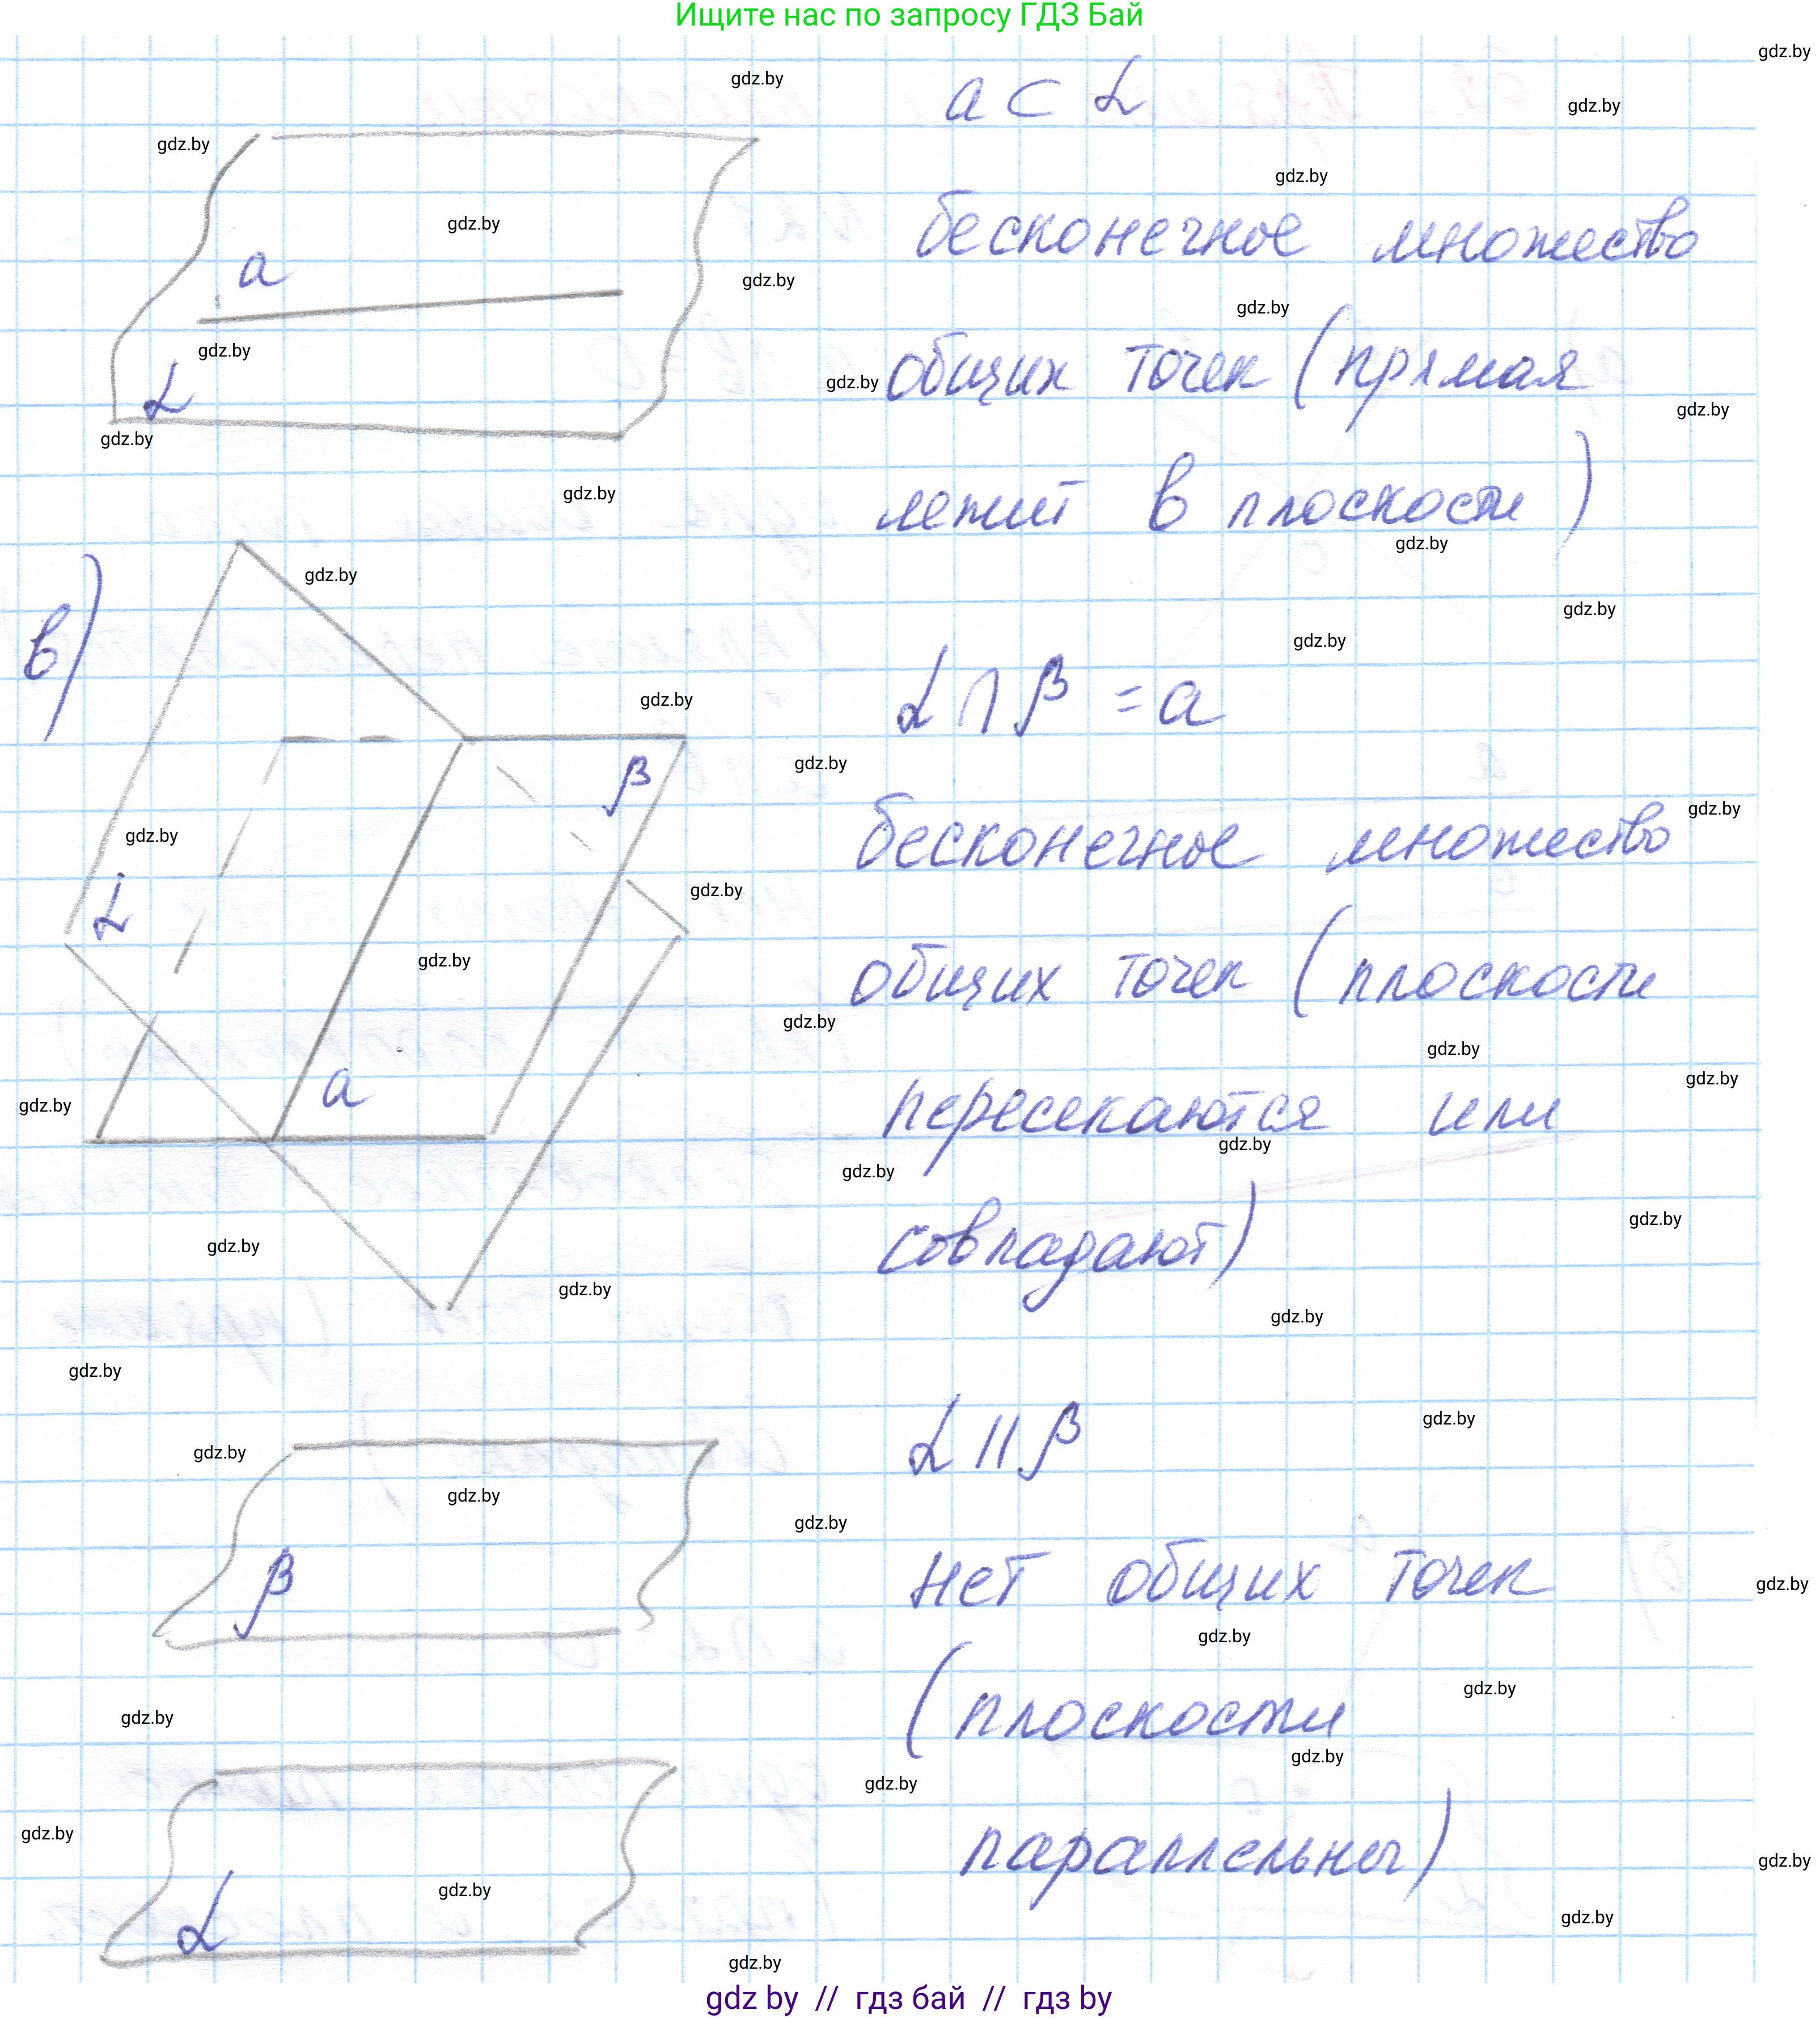 Ищите нас по запросу ГДЗ Бай
a ⊂ α
бесконечное множество
общих точек (прямая
лежит в плоскости)
a
α
в)
α ∩ β = a
бесконечное множество
общих точек (плоскости
пересекаются или
совпадают)
β
α
a
α || β
нет общих точек
(плоскости
параллельны)
β
α
gdz.by
gdz by // гдз бай // гдз by